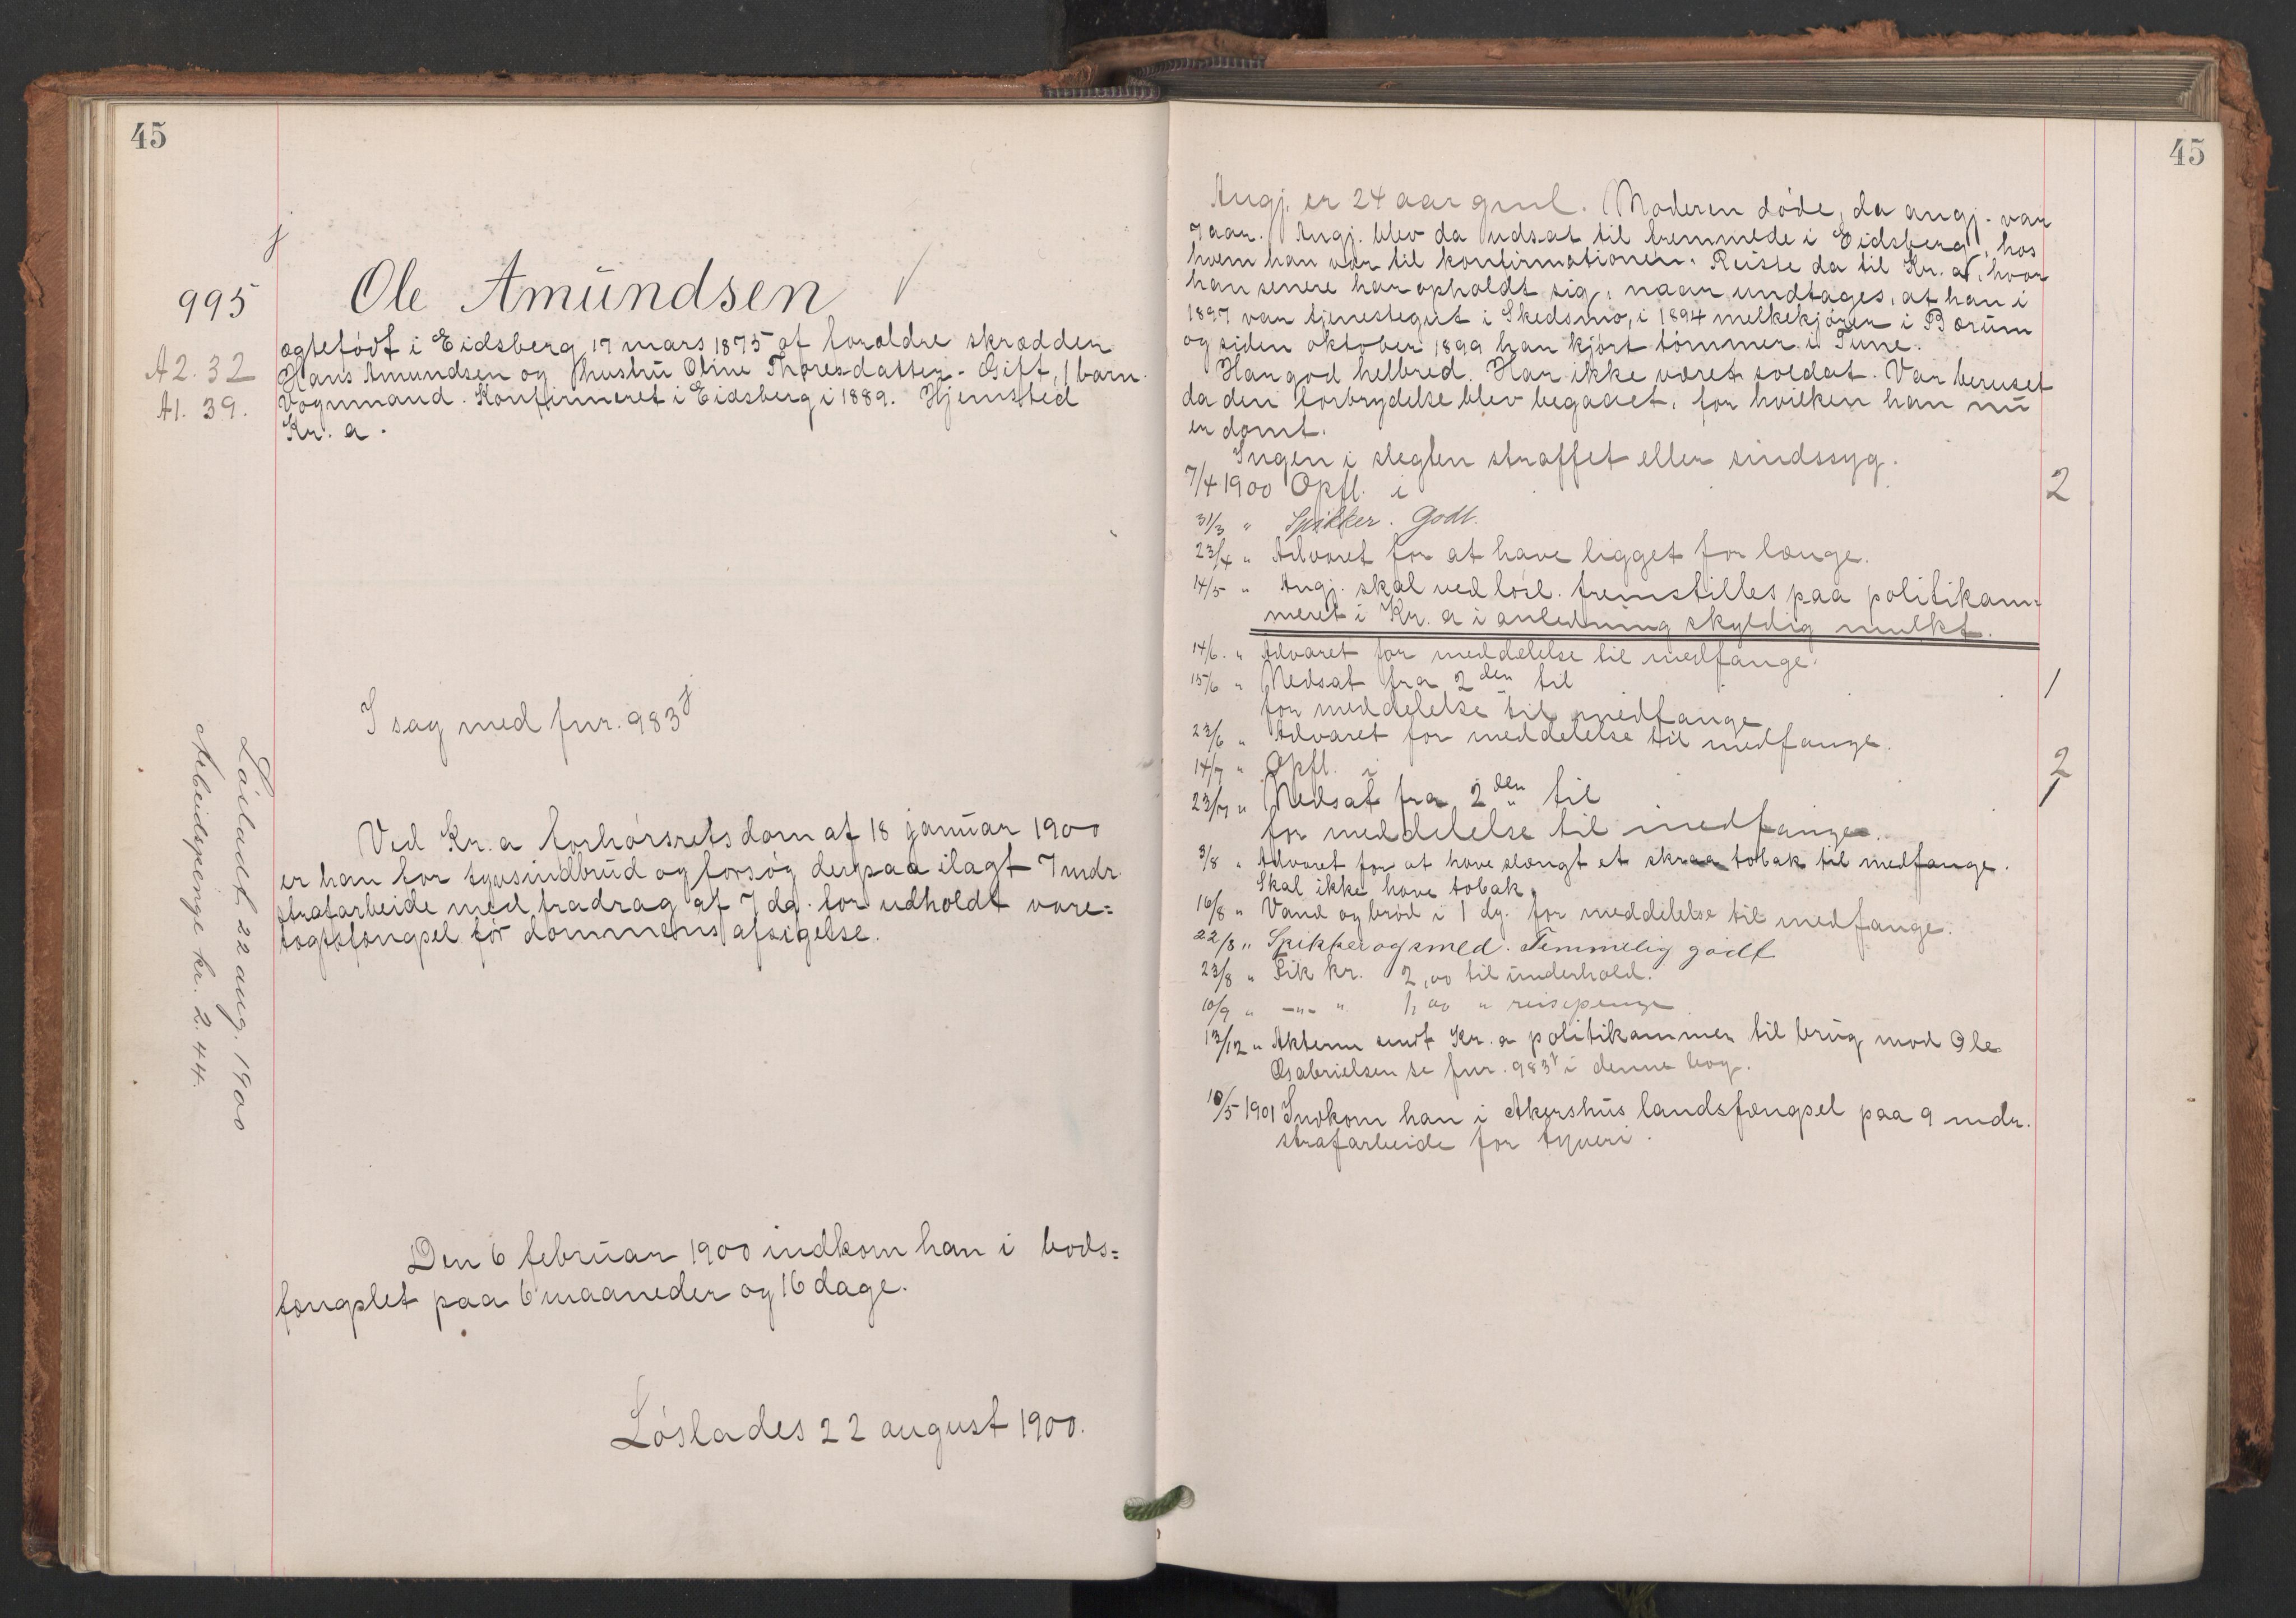 45
j
995
Ole Amundsen
A2. 32
A1. 39.
ægtefødt i Eidsberg 17 mars 1875 af forældre skrædder
Hans Amundsen og hustru Oline Thoresdatter. Gift, 1 barn.
Vognmand. Konfirmeret i Eidsberg i 1889. Hjemsted
Kr. a.
I sag med fnr. 983 j
Ved Kr. a forhørsrets dom af 18 januar 1900
er han for tyvsindbrud og forsøg derpaa ilagt 7 mdr.
strafarbeide med fradrag af 7 dg. for udholdt vare=
tægtsfængsel før dommens afsigelse.
Løsladt 22 aug. 1900
Arbeidspenge kr. 2.44.
Den 6 februar 1900 indkom han i bods=
fængslet paa 6 maaneder og 16 dage.
Løslades 22 august 1900.
45
Angj. er 24 aar gml. Moderen døde, da angj. var
7 aar. Angj. blev da udsat til fremmede i Eidsberg, hos
hvem han var til konfirmationen. Reiste da til Kr. a, hvor
han senere har opholdt sig, naar undtages, at han i
1897 var tjenestegut i Skedsmo, i 1894 melkekjører i Bærum
og siden oktober 1899 har kjørt tømmer i Tune.
Har god helbred. Har ikke været soldat. Var beruset
da den forbrydelse blev begaaet, for hvilken han nu
er dømt.
Ingen i slegten straffet eller sindssyg.
7/4 1900 Opfl. i 2
31/3 " Spikker. Godt.
23/4 " Advaret for at have ligget for længe.
14/5 " Angj. skal ved løsl. fremstilles paa politikam=
meret i Kr. a i anledning skyldig mulkt.
14/6. " Advaret for meddelelse til medfange.
15/6 " Nedsat fra 2den til 1
for meddelelse til medfange
23/6 " Advaret for meddelelse til medfange.
14/7 " Opfl. i 2
23/7 " Nedsat fra 2den til 1
for meddelelse til medfange.
3/8 " Advaret for at have slængt et skraa tobak til medfange.
Skal ikke have tobak.
16/8 " Vand og brød i 1 dg. for meddelelse til medfange.
22/8 " Spikker og smed. Temmelig godt
23/8 " Fik kr. 2,00 til underhold.
10/9 " -"- " 1,00 " reisepenge
13/12 " Akterne sendt Kr. a politikammer til brug mod Ole
Gabrielsen se fnr. 983 j i denne bog.
10/5 1901 Indkom han i Akershus landsfængsel paa 9 mdr.
strafarbeide for tyveri.